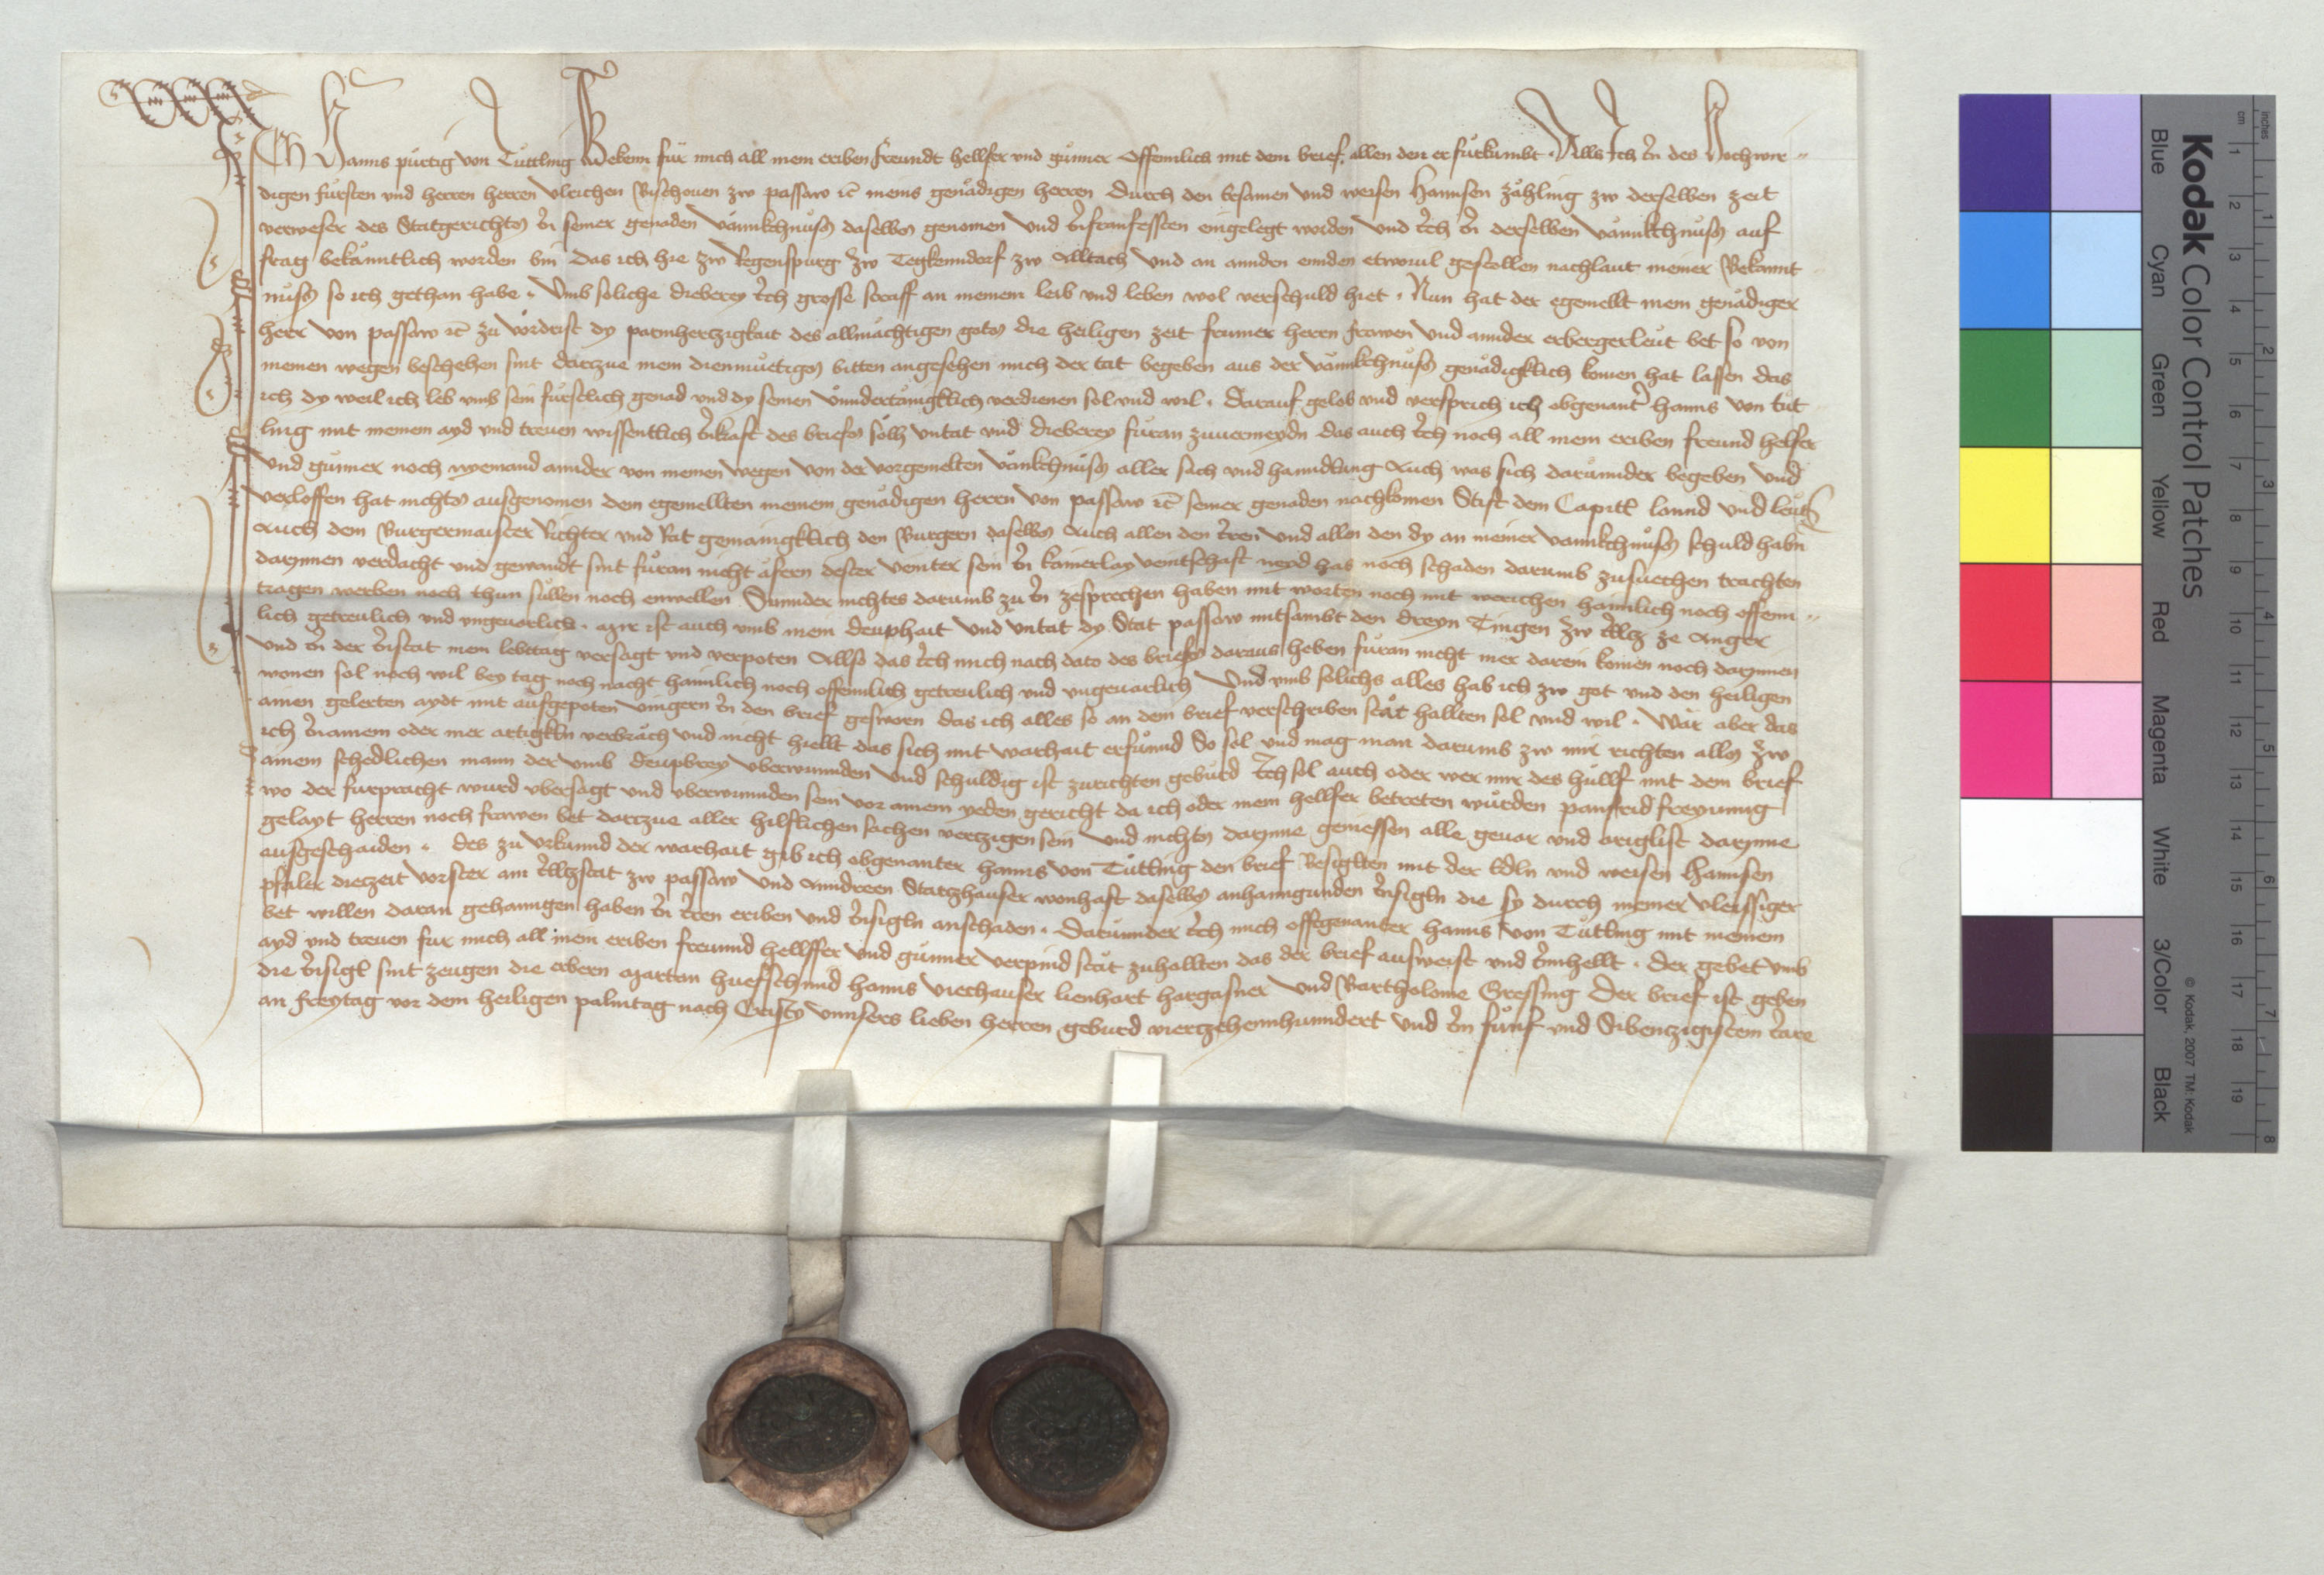 Ich Hanns pürtig von Tuttling Bekenn für mich all mein eriben freundt hellfer vnd günner Offennlich mit dem brief allen den er fürkumbt Alls Ich in des Hochwir
digen fürsten vnd herren herren Vlrichen Bischouen zw passaw etc meins genädigen herren Durch den besamen vnd weisen Hannsen zähling zw derselben zeit
verweser des Statgerichts in seiner genaden vännkchnüss daselbs genomen vnd eingelegt worden vnd ich in derselben vännkchnüss auf
frag bekänntlich worden bin das ich hie zw Regenspurg zw Tegkenndorf zw Alltach vnd an annden ennden etwovil gestollen nachlaut meiner Bekannt
nüss so ich gethan habe. Vmb soliche dieberey ich grosse straff an meinem leib vnd leben wol verschuld hiet. Nun hat der egemellt mein genädiger
herr von passaw etc zu vordrist dy parmhertzigkait des allmächtigen gots die heiligen zeit frumer herren frawen vnd annder erbergerleut bet so von
meinen wegen beschehen sint dartzue mein diemuetigs bitten angesehen mich der tat begeben aus der vännkchnuss genädigklich komen hat lassen das
ich dy weil ich leb vmb sein fürstlich genad vnd dy seinen vnndertänigklich verdienen sol vnd wil. Darauf gelob vnd versprich ich obgenanter hanns von tüt
ling mit meinem ayd vnd treuen wissentlich inkraft des briefs sollh vntat vnd dieberey füran zuuermeydn das auch ich noch all mein eriben freund helfer
vnd günner noch nyemand annder von meinen wegen von der vorgemelten vänkchnüss aller sach vnd hanndlung Auch was sich darunnder begeben vnd
verloffen hat nichts ausgenomen dem egemellten meinem genädigen herren von passaw etc seiner genaden nachkomen Stift dem Capitl lannd vnd leuten
Auch dem Burgermaister Richter vnd Rat gemainigklich den Burgern daselbs Auch allen den iren vnd allen den dy an meiner vannkchnüss schuld habn
darynnen verdacht vnd gewandt sint füran nicht äfern dester veinter sein in kainerlay veintschaft neyd has noch schaden darumb zusuechen trachten
tragen werben noch thun süllen noch enwellen Sunnder nichtes darumb zu in zesprechen haben mit worten noch mit werichen haimlich noch offenn
lich getreulich vnd vngeuarlich. Mir ist auch vmb mein deuphait vnd vntat dy Stat passaw mitsambt den dreyn Dingen zw Ylltz ze Anger
vnd in der Instat mein lebttag versagt vnd verpoten Allso das ich mich nach dato des briefs daraus heben füran nicht mer darein komen noch darynnen
wonen sol noch wil bey tag noch nacht haimlich noch offennlich getreulich vnd vngeuarlich Vnd vmb solichs alles hab ich zw got vnd den heiligen
ainen gelerten aydt mit aufgepoten vingern in den brief gesworn das ich alles so an dem brief verschriben stät hallten sol vnd wil. Wär aber das
ich inainem oder mer artigkln verbräch vnd nicht hiellt das sich mit warhait erfünnd So sol vnd mag man darumb zw mir richten alls zw
ainem schedlichen mann der vmb deupbrey vberwunnden vnd schuldig ist zurichten gebürd Ich sol auch oder wer mir des hüllf mit dem brief
wo der furpracht wurd vbersagt vnd vberwunnden sein vor ainem yeden gericht da ich oder mein hellfer betreten würden pantfrid freyunng
gelayt herren noch frawen bet dartzue aller hilflichen sachen vertzigen sein vnd nichts darynne geniessen alle geuar vnd argglist darynne
ausgeschaiden. Des zu vrkunnd der warhait gib ich obgenanter hanns von Tütling den brief Besiglten mit der Edln vnd weisen Hannsen
pfäler dietzeit vorster am Ylltzstat zw passaw vnd Anndreen Statzhauser wonhaft daselbs anhanngunden Insigln die sy durch meiner vleissiger
bet willen daran gehanngen haben in iren eriben vnd Insigln anschaden. Darunnder ich mich offtgenanter hanns von Tütling mit meinem
ayd vnd treuen für mich all mein eriben freunnd hellffer vnd günner verpind stät zuhallten das der brief ausweist vnd innhellt. Der gebet vmb
die Insigl sint zeugen die erbern Martan huefschmid hanns viechauser lienhart hargasner vnd Bartholome Gressing Der brief ist geben
an freytag vor dem heiligen palmtag nach Cristy vnnsers lieben herren geburd viertzehennhunndert vnd in fünf vnd Sibentzigistem iare
Kodak Color Control Patches
Blue Cyan Green Yellow Red Magenta White 3/Color Black
© Kodak, 2007 TM: Kodak
cm 1 2 3 4 5 6 7 8 9 10 11 12 13 14 15 16 17 18 19
inches 1 2 3 4 5 6 7 8